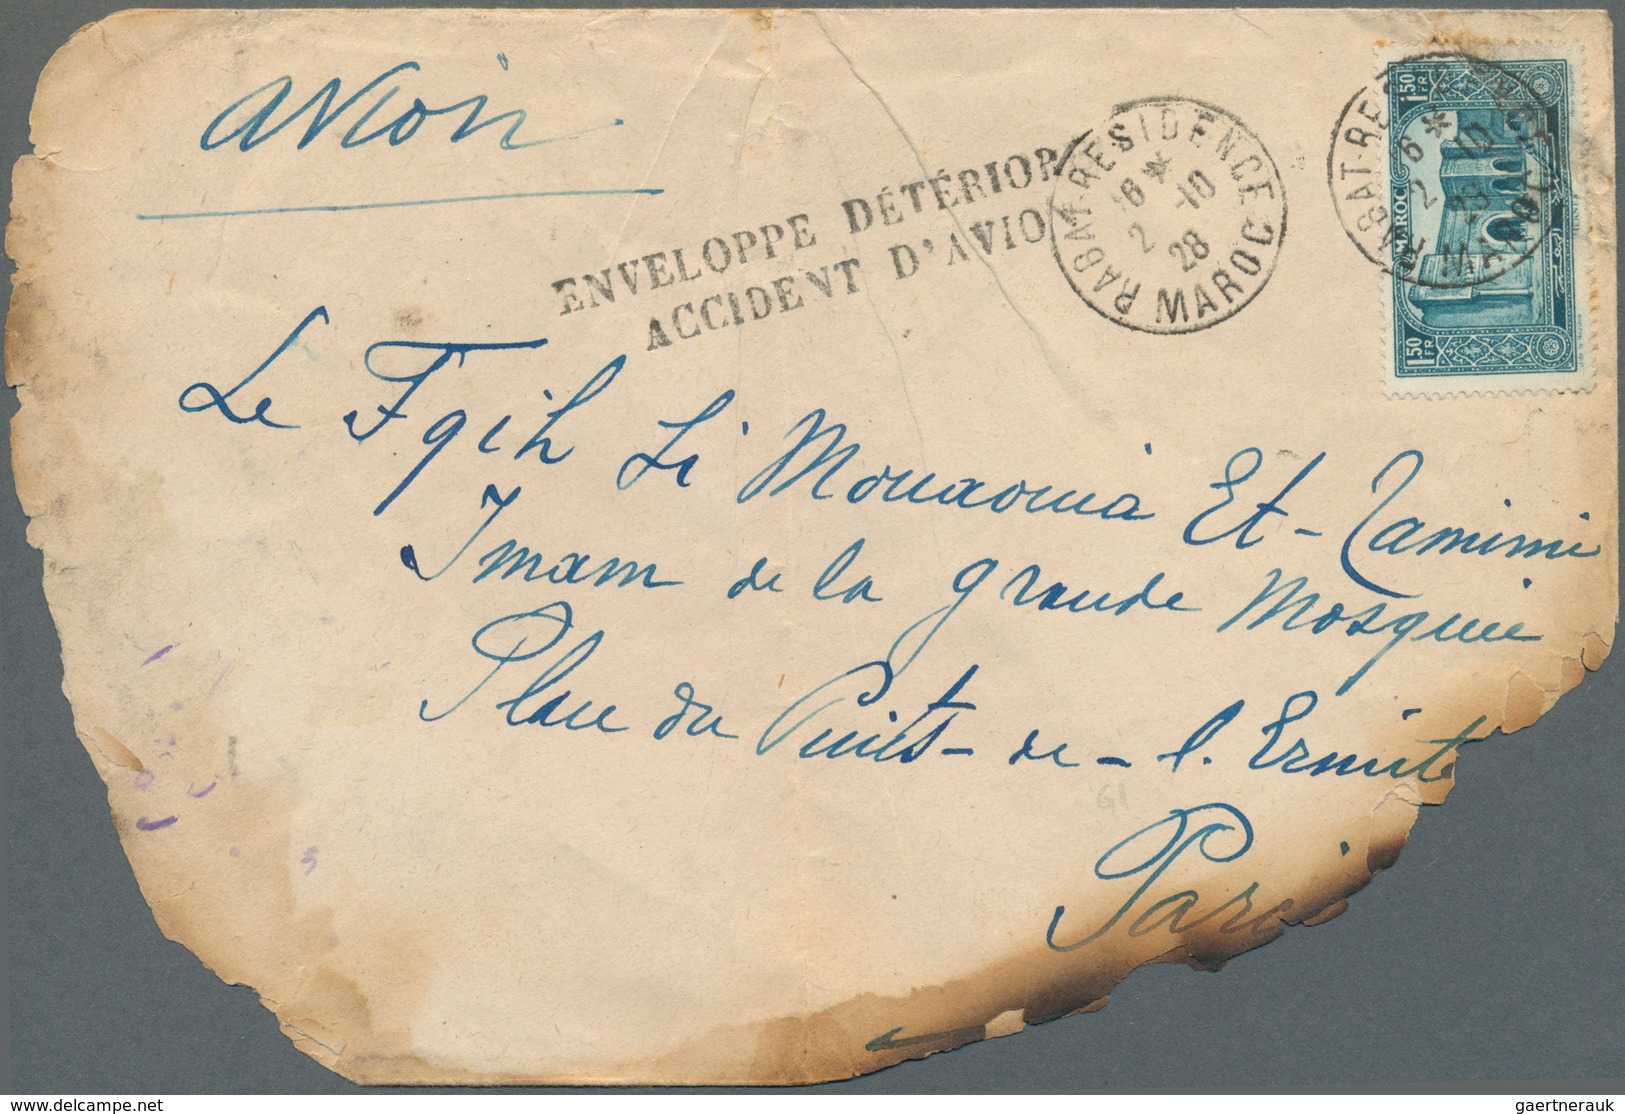 avion
ENVELOPPE DÉTÉRIOR
ACCIDENT D'AVIO
RABAT-RESIDENCE
16 * 10
2 28
MAROC
RABAT-RESIDENCE
16 * 10
2 28
MAROC
1,50 FR
MAROC
1,50 FR
Le Fqih Si Mouaouia Et-Tamimi
Imam de la grande Mosquée
Place du Puits-de-l'Ermite
Paris
gaertnerauk
www.delcampe.net